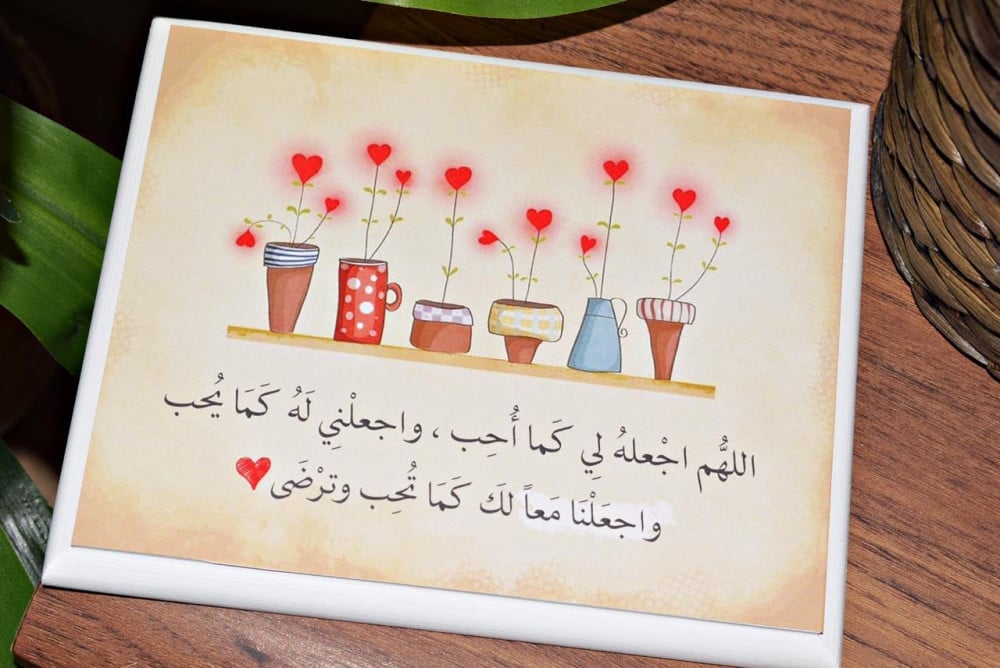 اللهُّم اجْعلهُ لِي كَما أُحِب ، واجعلْنِي لَهُ كَمَا يُحب
واجعَلْنَا مَعاً لكَ كَمَا تُحِب وترْضَى